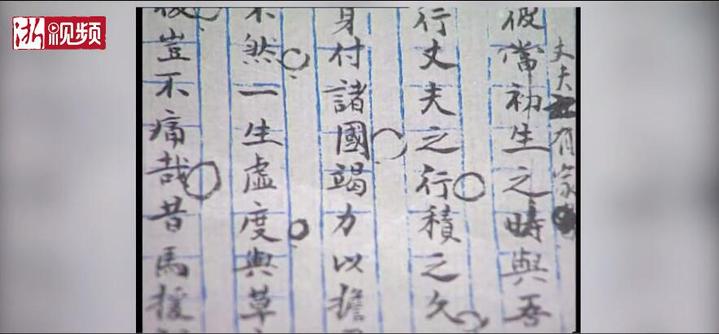 浙视频
丈夫有家
彼當初生之時與吾
行丈夫之行積之久
身付諸國竭力以擔
不然一生虛度與草
後豈不痛哉昔馬援